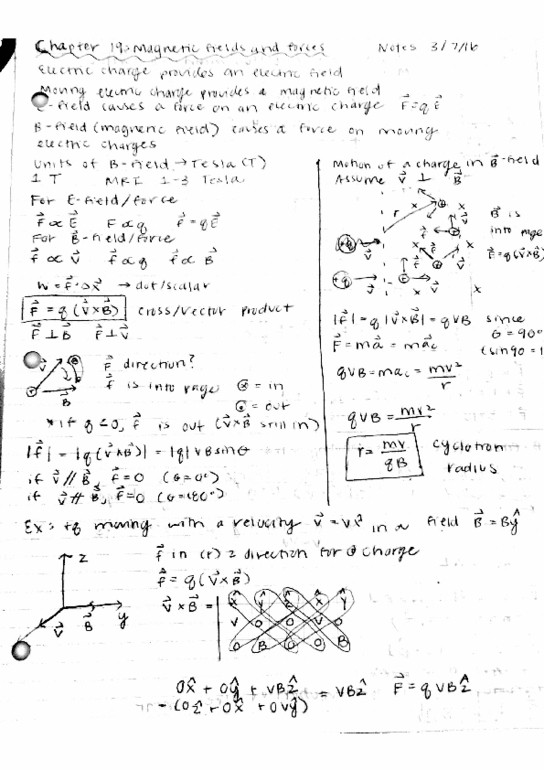 Chapter 19: Magnetic Fields and forces Notes 3/7/16
Electric charge provides an electric field
Moving electric charge provides a magnetic field
E-field causes a force on an electric charge F⃗=qE⃗
B-field (magnetic field) causes a force on moving
electric charges
Units of B-Field → Tesla (T)
1 T MRI 1-3 Tesla
For E-field/force
F⃗ ∝ E⃗ F ∝ q F⃗ = qE⃗
For B-field/force
F⃗ ∝ V⃗ F⃗ ∝ q F⃗ ∝ B⃗
W = F⃗·Δx⃗ → dot/scalar
F⃗ = q(V⃗×B⃗) cross/vector product
F⃗ ⊥ B⃗ F⃗ ⊥ V⃗
V⃗ B⃗ F⃗ direction?
F⃗ is into page ⊗ = in
⊙ = out
*if q<0, F⃗ is out (V⃗×B⃗ still in)
|F⃗| = |q(V⃗×B⃗)| = |q|VBsinθ
if V⃗ // B⃗, F⃗=0 (θ=0°)
if V⃗ // B⃗, F⃗=0 (θ=180°)
Motion of a charge in B⃗-field
Assume V⃗ ⊥ B⃗
B⃗ is
into page
F⃗=q(V⃗×B⃗)
+q V⃗ r F⃗ x
|F⃗| = q|V⃗×B⃗| = qVB since
θ=90°
F⃗ = ma⃗ = ma⃗c (sin90=1
qVB = mac = mv²/r
qVB = mv²/r
r = mv/qB cyclotron
radius
Ex: +q moving with a velocity V⃗ = Vx̂ in a field B⃗ = Bŷ
F⃗ in (+) z direction for ⊕ charge
F⃗ = q(V⃗×B⃗)
z y V⃗ B⃗
V⃗×B⃗ = | x̂ ŷ ẑ x̂ ŷ
V 0 0 V 0
0 B 0 0 B
0x̂ + 0ŷ + VBẑ = VBẑ F⃗ = qVBẑ
-(0ẑ + 0x̂ + 0Vŷ)